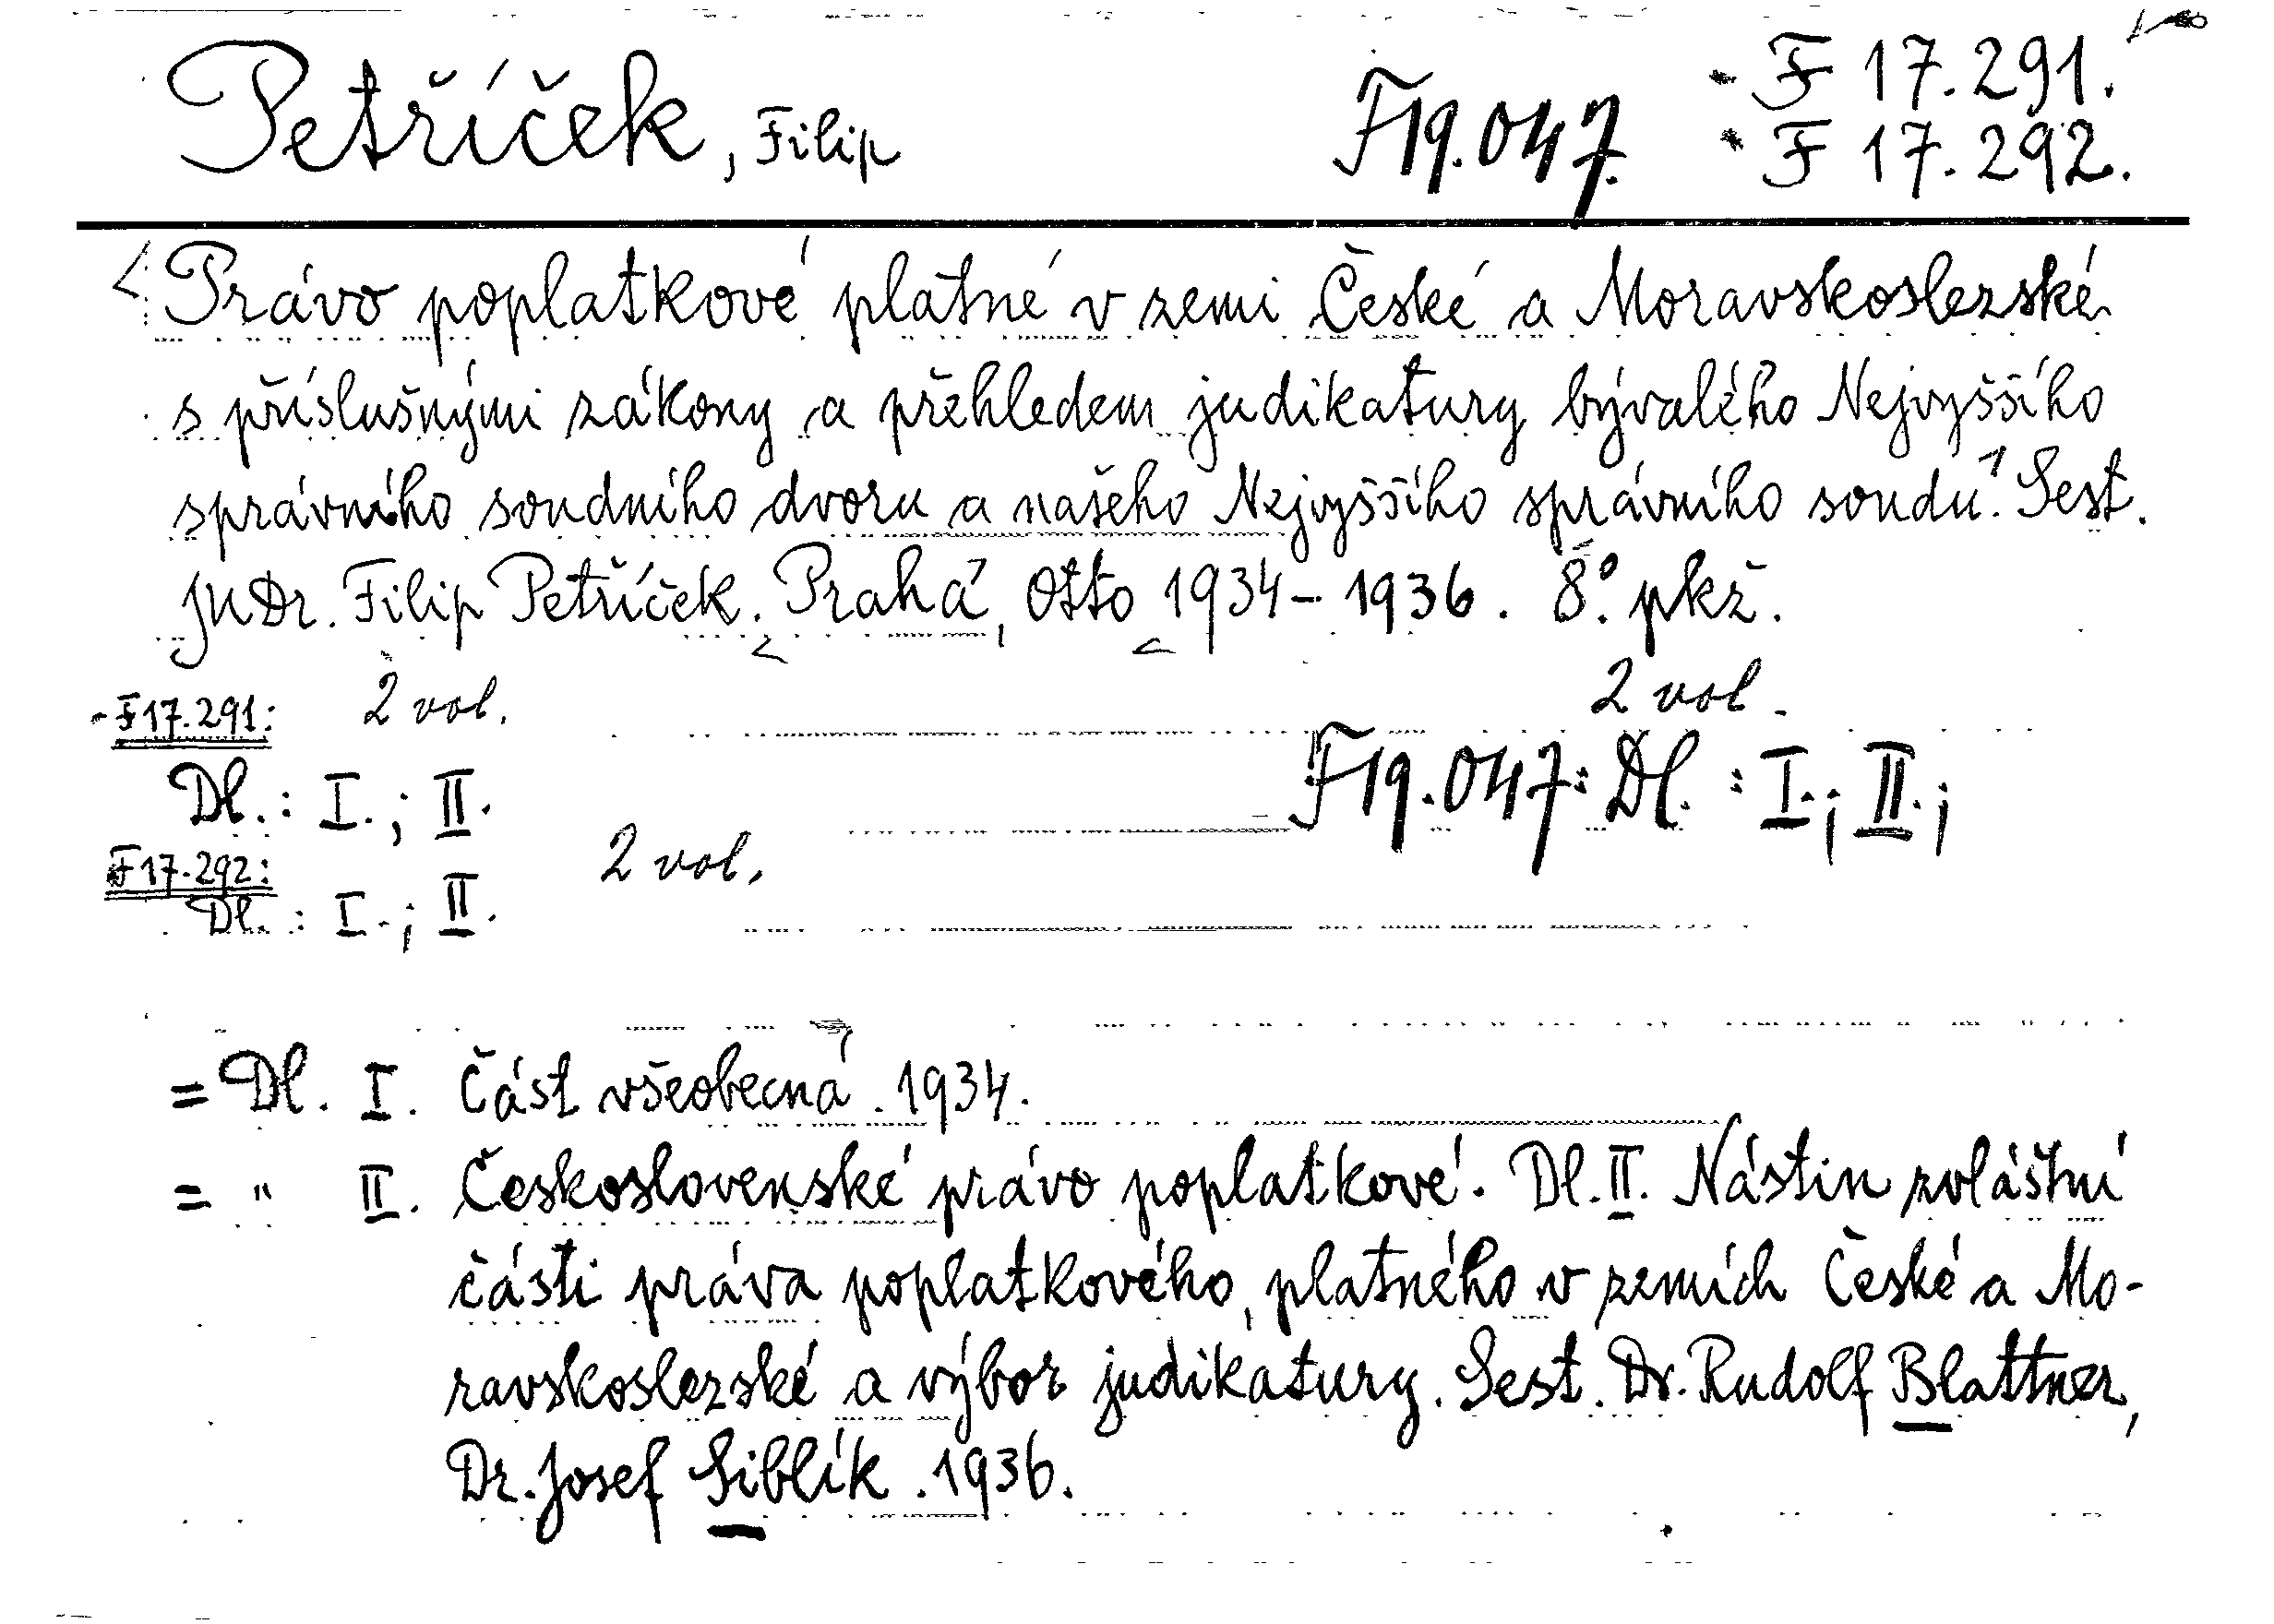 Petříček, Filip F19.047. F 17.291.
F 17.292.
Právo poplatkové platné v zemi České a Moravskoslezské
s příslušnými zákony a přehledem judikatury bývalého Nejvyššího
správního soudního dvoru a našeho Nejvyššího správního soudu. Sest.
JUDr. Filip Petříček. Praha, Otto 1934-1936. 8°. pkž.
F17.291: 2 vol. 2 vol.
Dl.: I.; II. F19.047: Dl.: I.; II.;
F17.292: 2 vol.
Dl.: I.; II.
= Dl. I. Část všeobecná. 1934.
= " II. Československé právo poplatkové. Dl. II. Nástin zvláštní
části práva poplatkového, platného v zemích České a Mo-
ravskoslezské a výbor judikatury. Sest. Dr. Rudolf Blattner,
Dr. Josef Siblík. 1936.